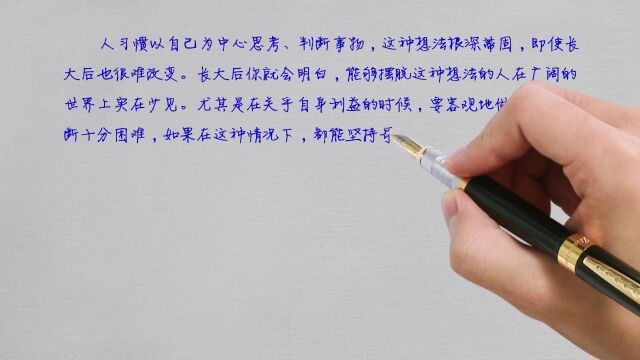 人习惯以自己为中心思考、判断事物，这种想法根深蒂固，即使长
大后也很难改变。长大后你就会明白，能够摆脱这种想法的人在广阔的
世界上实在少见。尤其是在关乎自身利益的时候，要客观地
断十分困难，如果在这种情况下，都能坚持